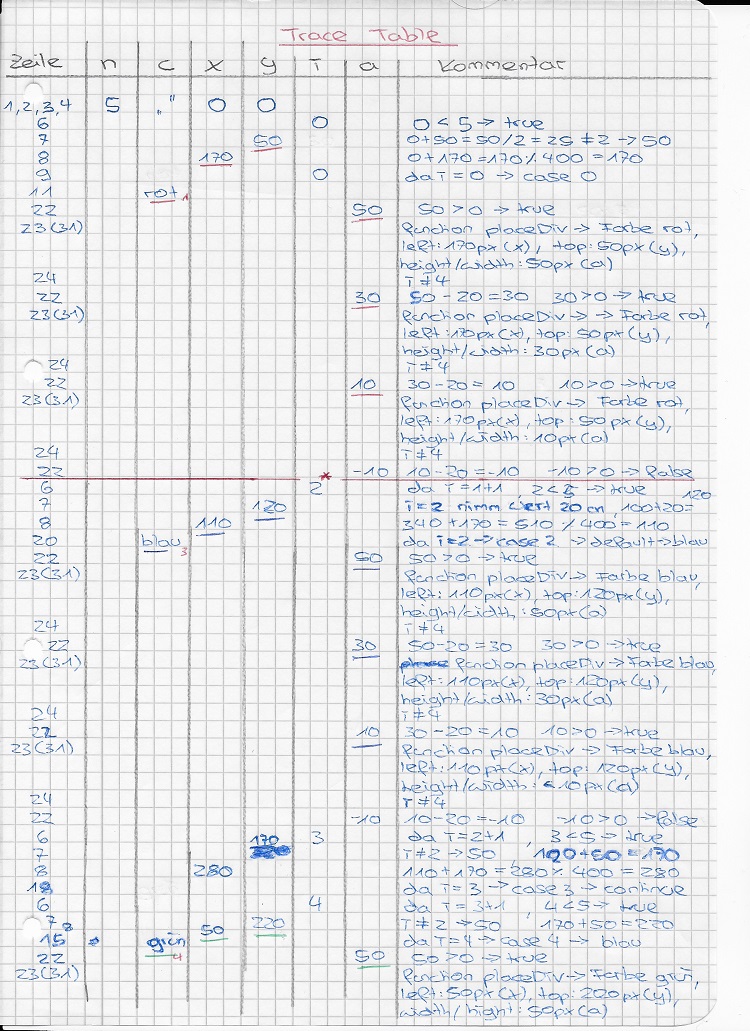 Trace Table
Zeile n c x y i a Kommentar
1,2,3,4 5 „" 0 0
6 0 0<5 → true
7 50 0+50=50/2=25 ≠2 → 50
8 170 0+170=170%400=170
9 0 da i=0 → case 0
11 rot 1
22 50 50>0 → true
23(31) function placeDiv → Farbe rot,
left:170px(x), top:50px(y),
height/width:50px(a)
24 i≠4
22 30 50-20=30 30>0 → true
23(31) function placeDiv → → Farbe rot,
left:170px(x), top:50px(y),
height/width:30px(a)
24 i≠4
22 10 30-20=10 10>0 → true
23(31) function placeDiv → Farbe rot,
left:170px(x), top:50px(y),
height/width:10px(a)
24 i≠4
22 -10 10-20=-10 -10>0 → false
*
6 2 da i=1+1, 2<5 → true
7 120 i=2 nimm Wert 20 an, 100+20= 120
8 110 340+170=510%400=110
20 blau 3 da i=2 → case 2 → default → blau
22 50 50>0 → true
23(31) function placeDiv → Farbe blau,
left:110px(x), top:120px(y),
height/width:50px(a)
24 i≠4
22 30 50-20=30 30>0 → true
23(31) function placeDiv → Farbe blau,
left:110px(x), top:120px(y),
height/width:30px(a)
24 i≠4
22 10 30-20=10 10>0 → true
23(31) function placeDiv → Farbe blau,
left:110px(x), top:120px(y),
height/width:10px(a)
24 i≠4
22 -10 10-20=-10 -10>0 → false
6 3 da i=2+1, 3<5 → true
7 170 i≠2 → 50 120+50=170
8 280 110+170=280%400=280
18 da i=3 → case 3 → continue
6 4 da i=3+1, 4<5 → true
7 220 i≠2 → 50 170+50=220
8 50
15 grün 4 da i=4 → case 4 → blau
22 50 50>0 → true
23(31) function placeDiv → Farbe grün,
left:50px(x), top:200px(y),
width/hight:50px(a)